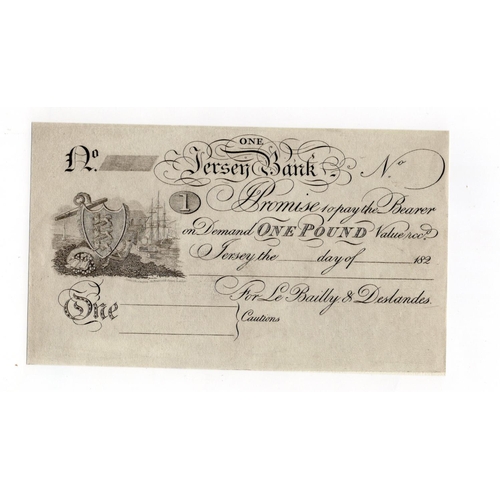 ONE
No. Jersey Bank. No
1 I Promise to pay the Bearer
on Demand ONE POUND Value recd.
Jersey the day of 182
For Le Bailly & Deslandes.
One
Cautions